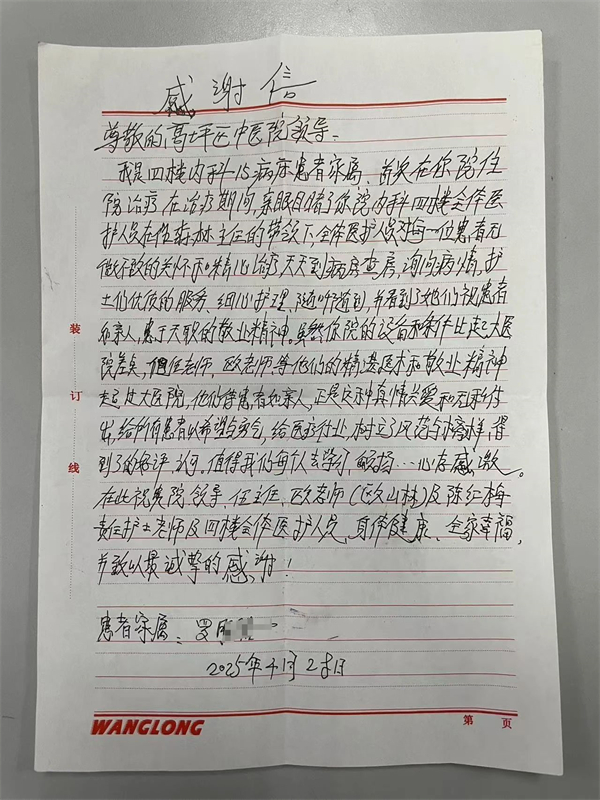 感谢信
尊敬的高坪区中医院领导:
我是四楼内科15病床患者家属、首次在你院住
院治疗在治疗期间,亲眼目睹了你院内科四楼全体医
护人员在任森林主任的带领下,全体医护人员对每一位患者无
微不致的关怀和精心治疗天天到病房查房,询问病情,护
士们优质的服务、细心护理、随叫随到,看到了她们视患者
如亲人,患于天职的敬业精神。虽然你院的设备和条件比起大医
院差点,但任老师,欧老师等他们的精湛医术和敬业精神
超过大医院,他们待患者如亲人,正是这种真情关爱和无私付
出,给所有患者以希望与勇气,给医疗行业,树立了风范与榜样,得
到了的好评。值得我们每个人去学习,…心存感激。
在此祝贵院领导任主任、欧老师(欧山林)及陈红梅
责任护士老师及四楼全体医护人员,身体健康、全家幸福,
并致以最诚挚的感谢!
患者家属:罗
2025年4月28日
装
订
线
WANGLONG
第 页